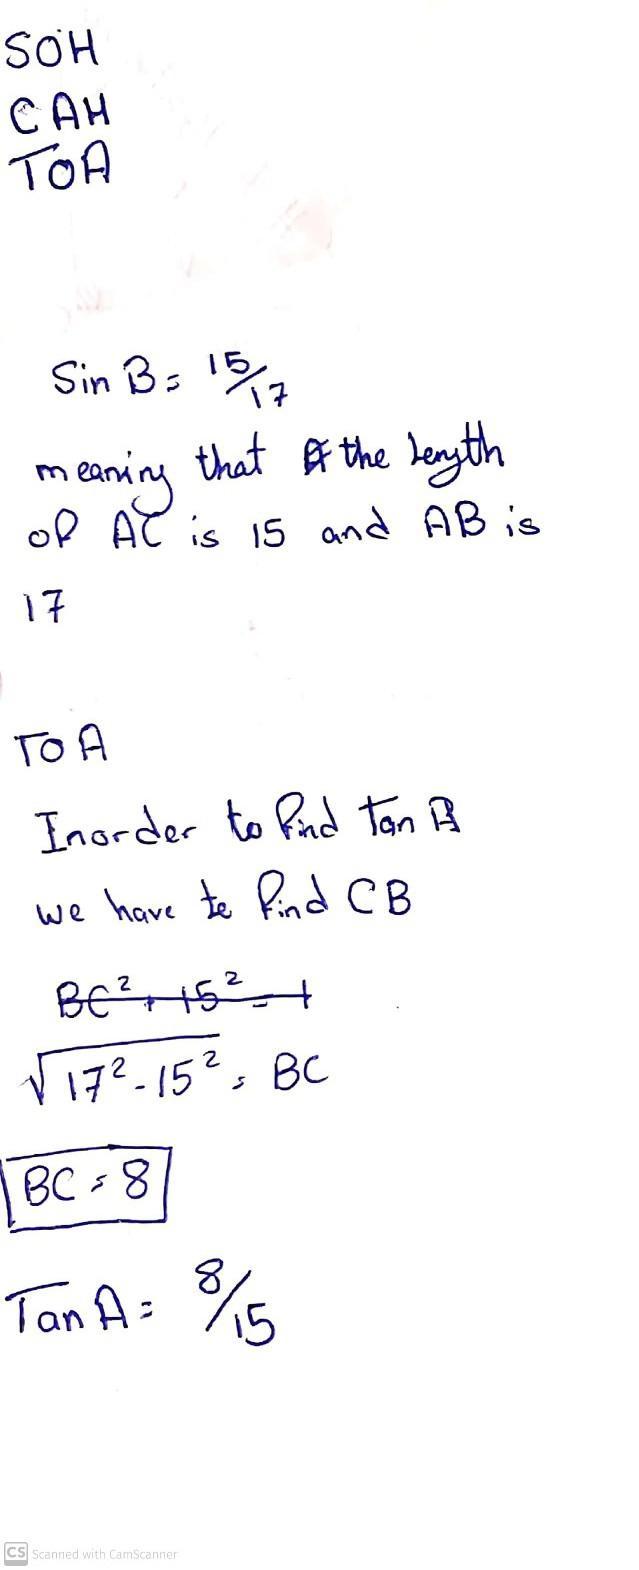 SOH
CAH
TOA
Sin B = 15/17
meaning that the length
of AC is 15 and AB is
17
TOA
Inorder to find Tan
we have to find CB
BC² + 15² = 1
√17² - 15² = BC
BC = 8
Tan A = 8/15
CS Scanned with CamScanner